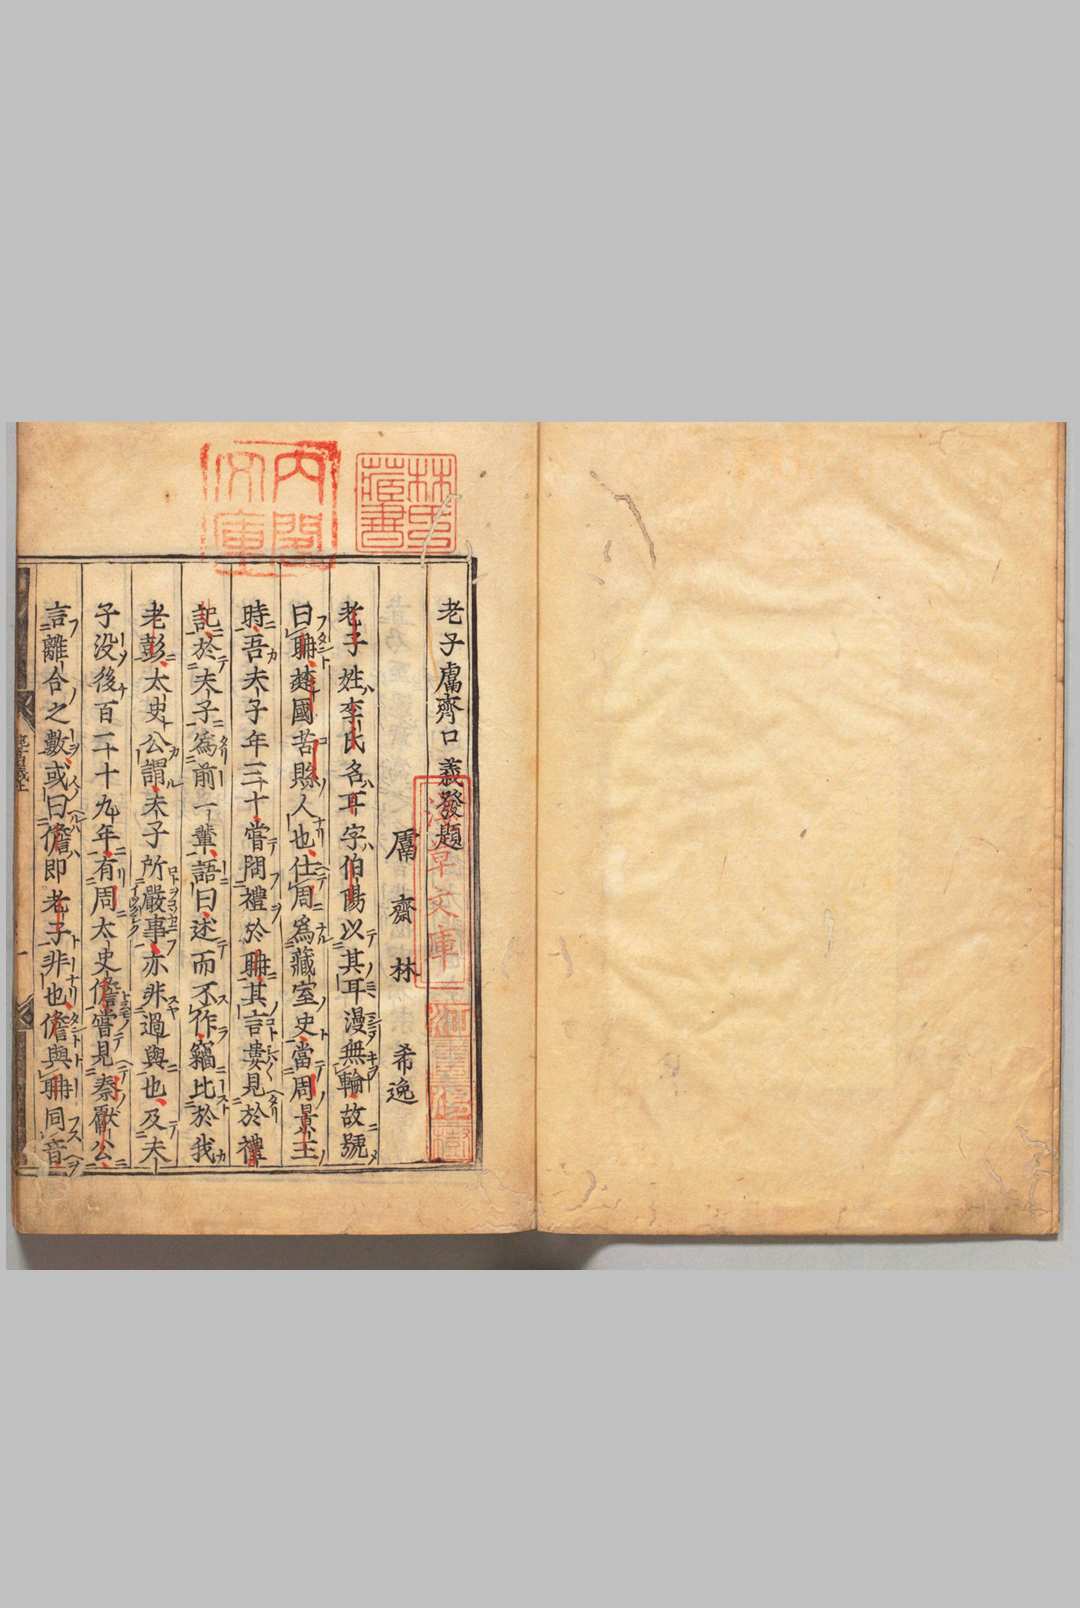 老子鬳齊口義發題
鬳齋林希逸
老子姓李氏名耳字伯陽以其耳漫無輪故號
曰聃楚國苦縣人也仕周爲藏室史當周景王
時吾夫子年三十嘗問禮於聃其言屢見於禮
記於夫子爲前一輩語曰述而不作竊比於我
老彭太史公謂夫子所嚴事亦非過與也及夫
子没後百二十九年有周太史儋嘗見秦獻公
言離合之數或曰儋即老子非也儋與聃同音
内閣
文庫
林氏
蔵書
淺草文庫